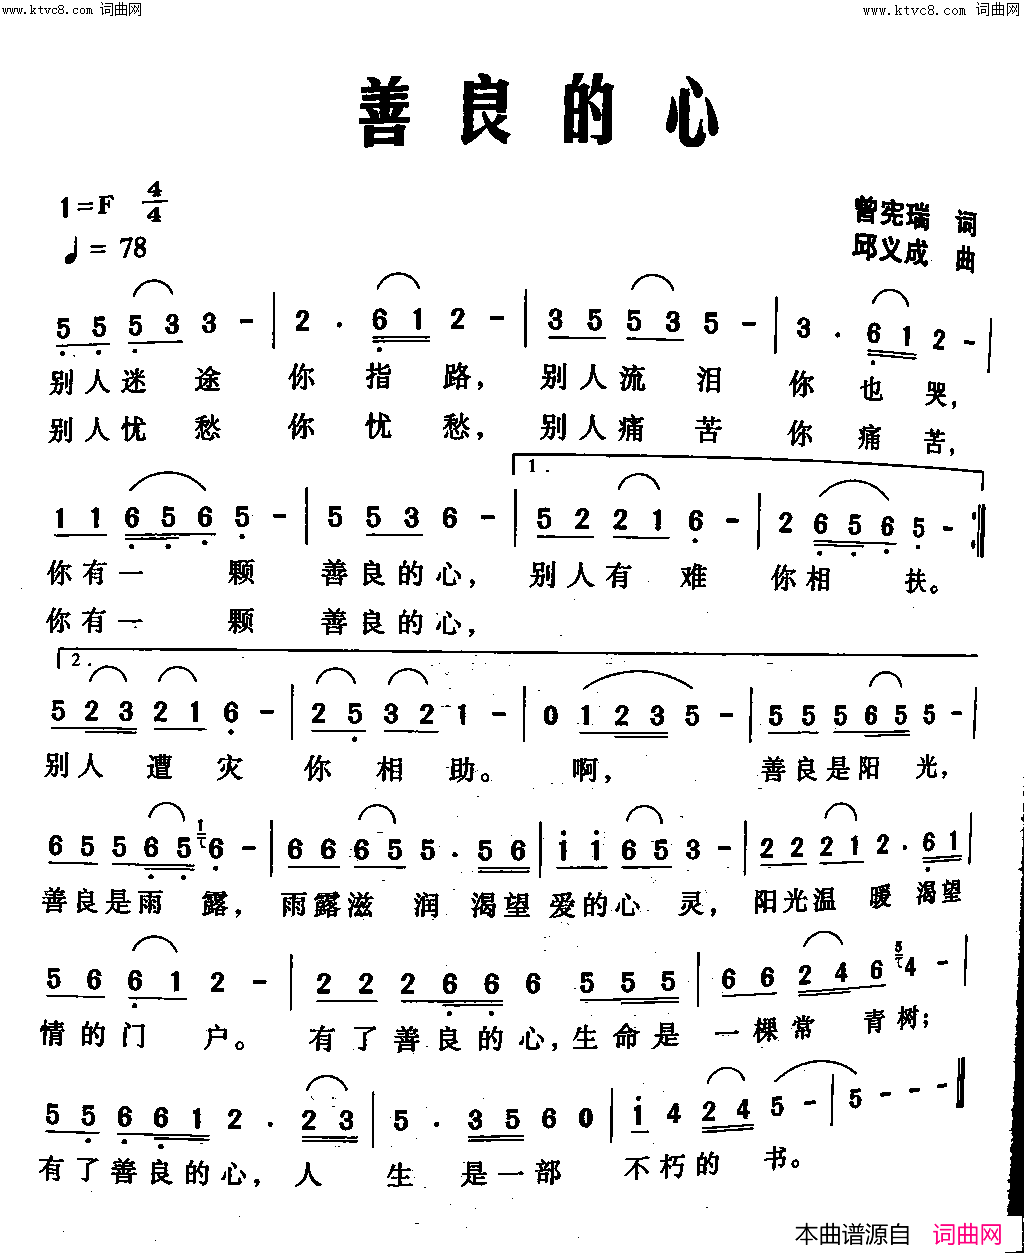 www.ktvc8.com 词曲网 www.ktvc8.com 词曲网
善良的心
1=F 4/4
曾宪瑞 词
♩= 78
邱义成 曲
5 5 5 3 3 - | 2 . 6 1 2 - | 3 5 5 3 5 - | 3 . 6 1 2 - |
别人迷途 你指路, 别人流泪 你也哭,
别人忧愁 你忧愁, 别人痛苦 你痛苦,
1.
1 1 6 5 6 5 - | 5 5 3 6 - | 5 2 2 1 6 - | 2 6 5 6 5 - :||
你有一 颗 善良的心, 别人有 难 你相 扶。
你有一 颗 善良的心,
2.
5 2 3 2 1 6 - | 2 5 3 2 1 - | 0 1 2 3 5 - | 5 5 5 6 5 5 - |
别人 遭 灾 你 相 助。 啊, 善良是阳 光,
6 5 5 6 5 1 6 - | 6 6 6 5 5 . 5 6 | i i 6 5 3 - | 2 2 2 1 2 . 6 1 |
善良是雨 露, 雨露滋 润 渴望 爱的心 灵, 阳光温 暖 渴望
5 6 6 1 2 - | 2 2 2 6 6 6 5 5 5 | 6 6 2 4 6 5 4 - |
情的门 户。 有了善良的心,生命是 一棵常 青树;
5 5 6 6 1 2 . 2 3 | 5 . 3 5 6 0 | i 4 2 4 5 - | 5 - - - ||
有了善良的心, 人 生 是一部 不朽的 书。
本曲谱源自 词曲网